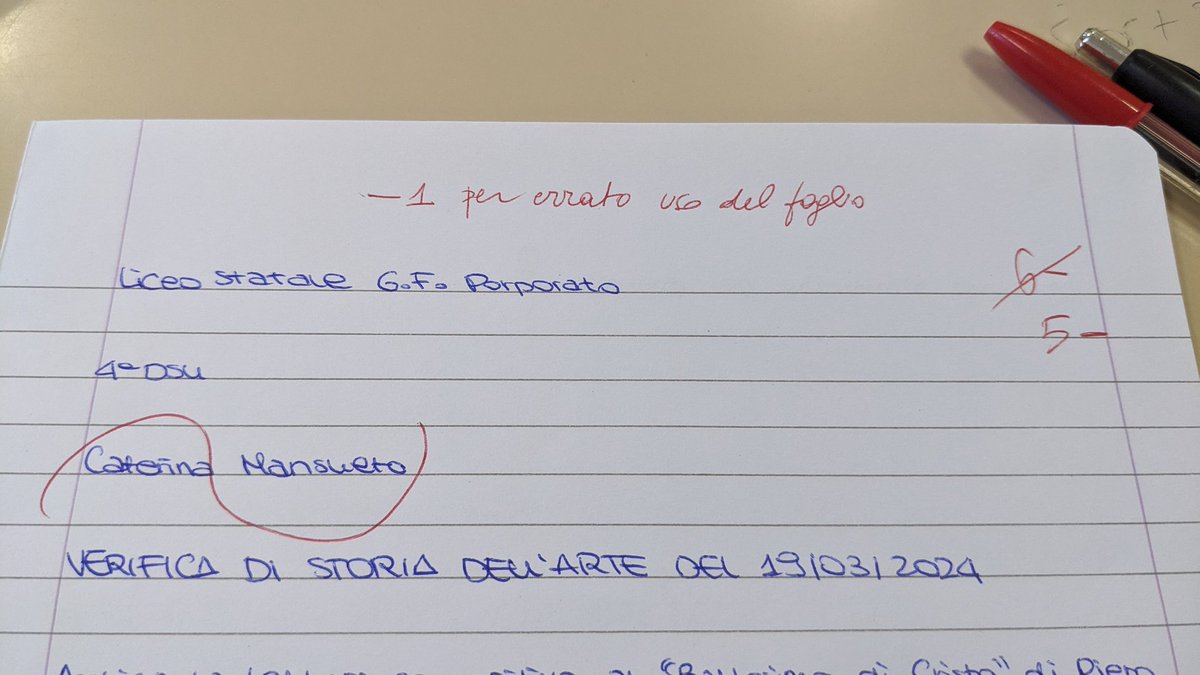 -1 per errato uso del foglio
Liceo statale G.F. Porporato
6-
5-
4ª DSU
Caterina Mansueto
VERIFICA DI STORIA DELL'ARTE DEL 19/03/2024
di Cristo" di Piero